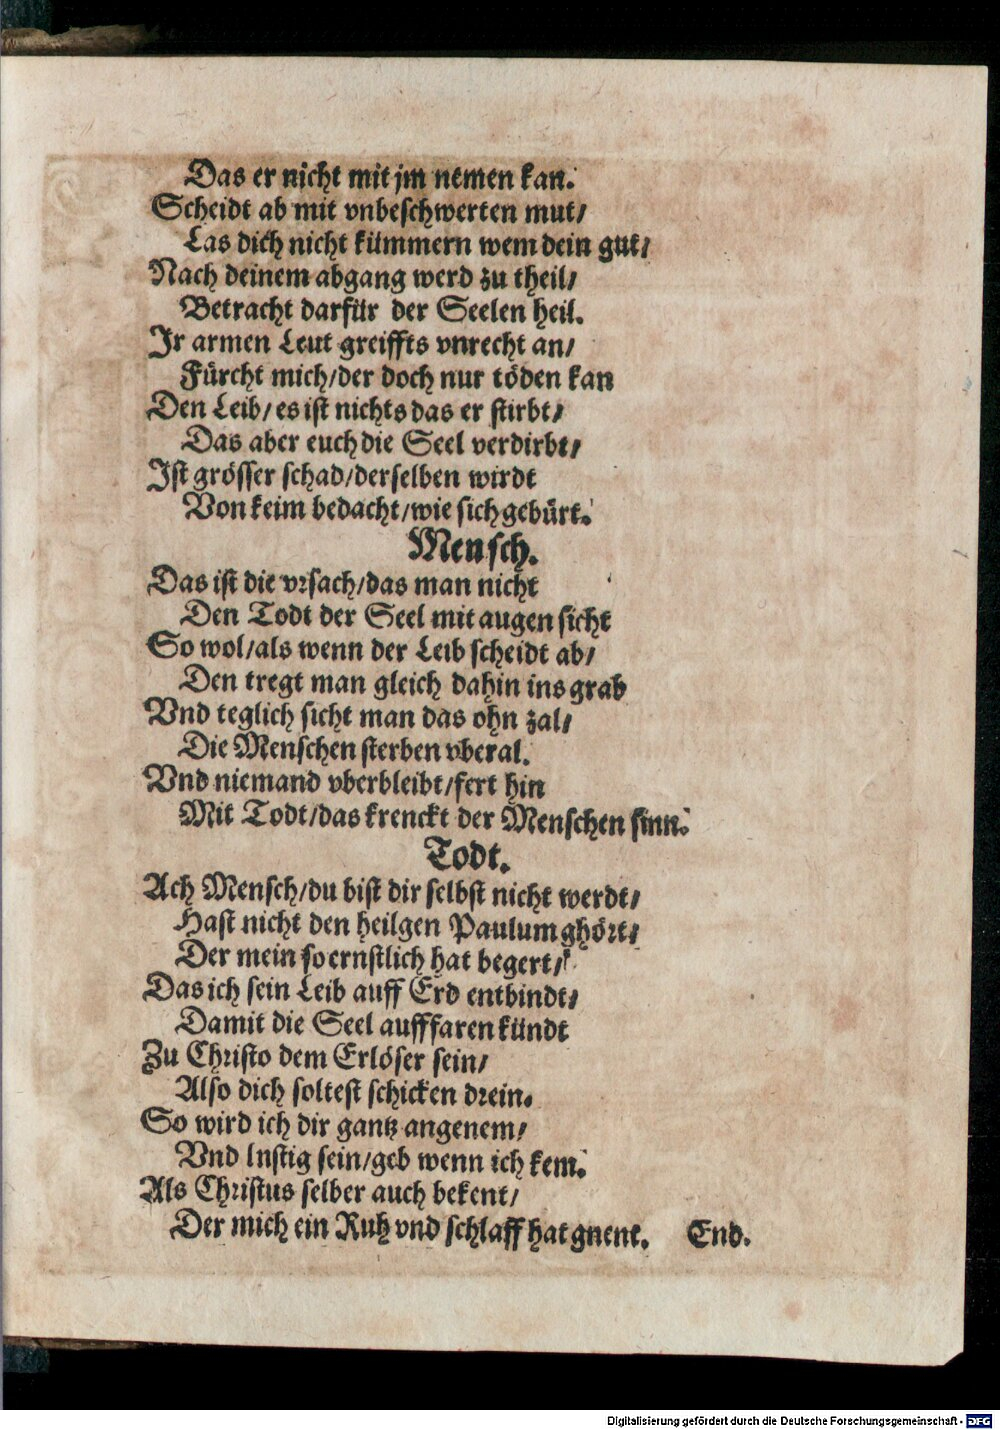 Das er nicht mit jm nemen kan.
Scheidt ab mit vnbeschwerten mut/
Las dich nicht kümmern wem dein gut/
Nach deinem abgang werd zu theil/
Betracht darfür der Seelen heil.
Jr armen Leut greiffts vnrecht an/
Fürcht mich/der doch nur töden kan
Den Leib/es ist nichts das er stirbt/
Das aber euch die Seel verdirbt/
Jst grösser schad/derselben wirdt
Von keim bedacht/wie sich gebürt.
Mensch.
Das ist die vrsach/das man nicht
Den Todt der Seel mit augen sicht
So wol/als wenn der Leib scheidt ab/
Den tregt man gleich dahin ins grab
Vnd teglich sicht man das ohn zal/
Die Menschen sterben vberal.
Vnd niemand vberbleibt/fert hin
Mit Todt/das krenckt der Menschen sinn.
Todt.
Ach Mensch/du bist dir selbst nicht werdt/
Hast nicht den heilgen Paulum ghört/
Der mein so ernstlich hat begert/
Das ich sein Leib auff Erd entbindt/
Damit die Seel aufffaren kündt
Zu Christo dem Erlöser sein/
Also dich soltest schicken drein.
So wird ich dir gantz angenem/
Vnd lnstig sein/geb wenn ich kem.
Als Christus selber auch bekent/
Der mich ein Ruh vnd schlaff hat gnent. End.
Digitalisierung gefördert durch die Deutsche Forschungsgemeinschaft - DFG